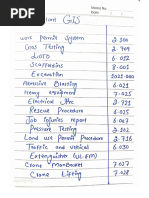 Mobile No
Date
GIS
Work Permit System 2.100
Gas Testing 2.709
LOTO 6.012
Scaffolding 8.001
Excavation 1021.000
Abrasive Blasting 6.021
Heavy equipment 7.025
Electrical
Rescue Procedure 6.025
Job Injuries report 6.001
Pressure Testing 2.102
Land use Permit Procedure 2.716
Traffic and vehical 6.030
Extinguisher
Crane ManBasket 7.027
Crane Lifting 7.028